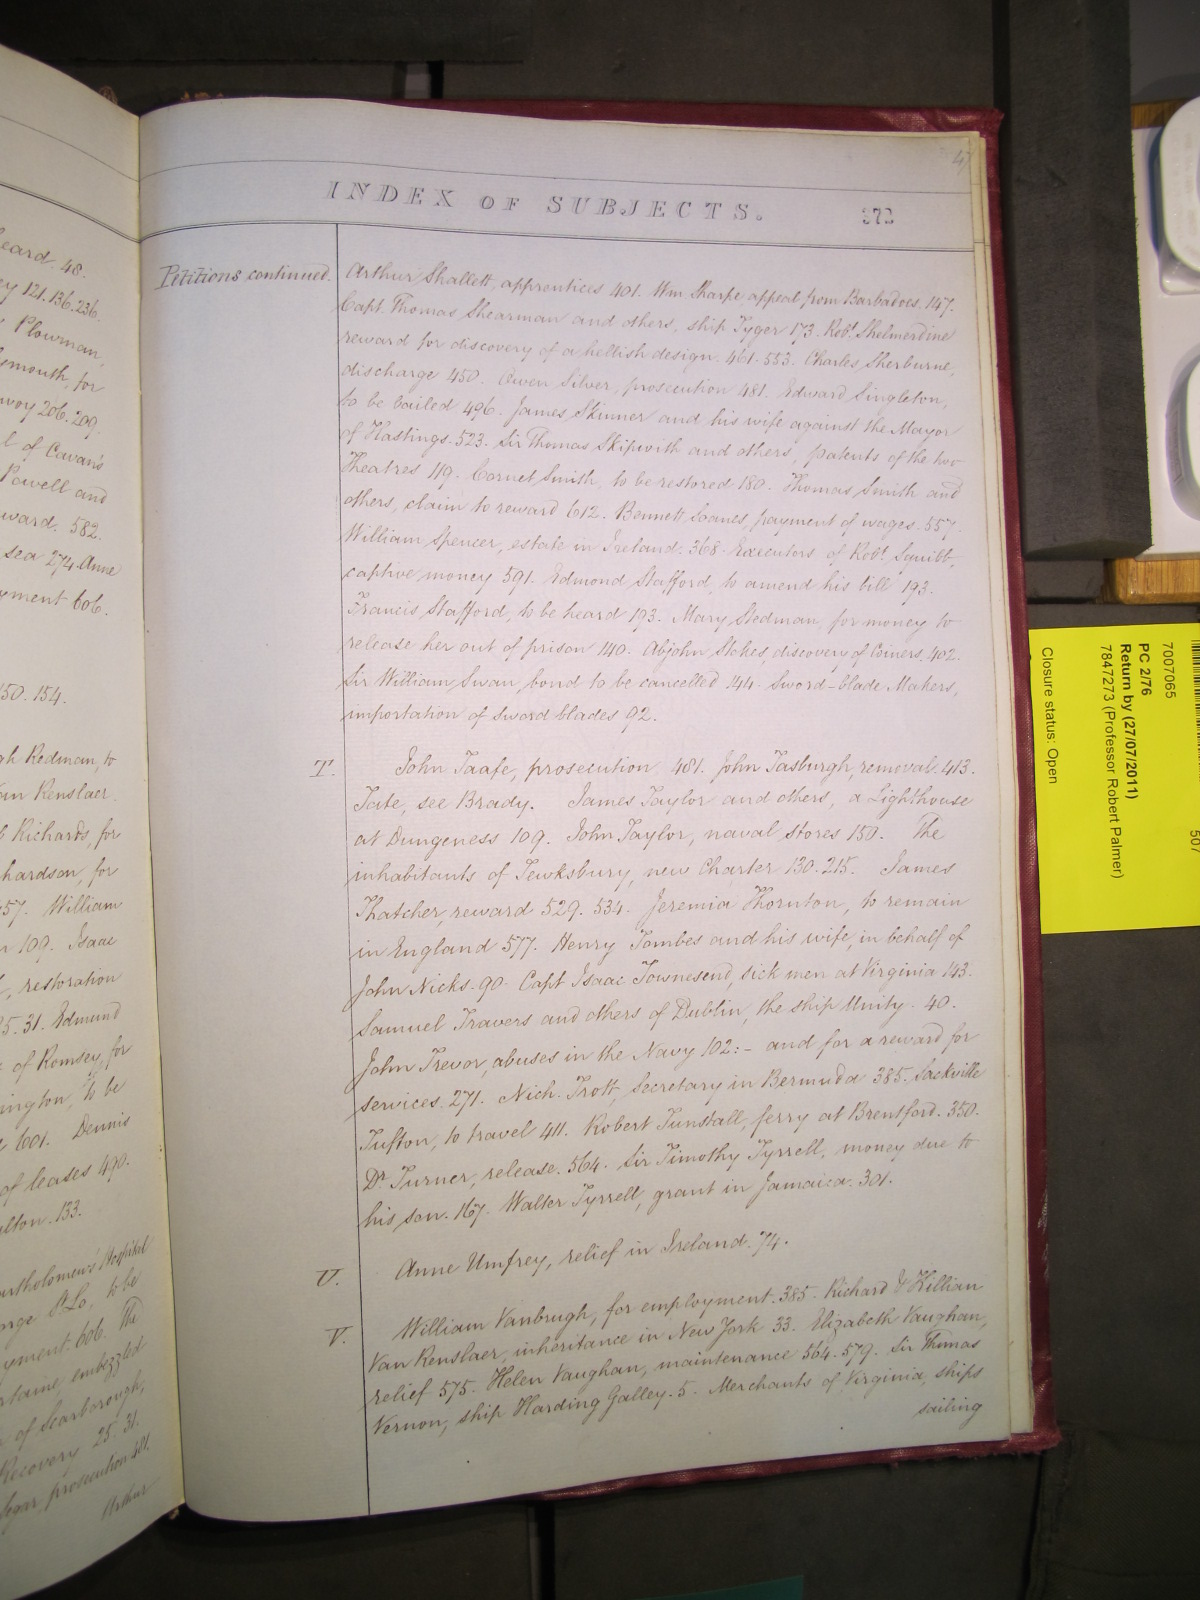 heard. 48.
121. 136. 236.
Plowman,
mouth, for
206. 209.
of Cavan's
Powell and
582.
sea 274. Anne
606.
150. 154.
Redman, to
Van Renslaer.
Richards, for
hardson, for
57. William
109. Isaac
restoration
25. 31. Edmund
of Romsey, for
to be
601. Dennis
of leases 490.
133.
Hospital
to be
606. The
embezzled
of Scarborough,
Recovery 25. 31.
prosecution 481.
Arthur
47
INDEX OF SUBJECTS.
373
Petitions continued.
Arthur Shallett, apprentices 401. Wm Sharpe, appeal from Barbadoes. 147.
Capt. Thomas Shearman and others, ship Tyger 173. Robt. Shelmerdine
reward for discovery of a hellish design. 461. 553. Charles Sherburne,
discharge 450. Owen Silver, prosecution 481. Edward Singleton,
to be bailed 496. James Skinner and his wife against the Mayor
of Hastings. 523. Sir Thomas Skipwith and others, patents of the two
Theatres 119. Cornet Smith, to be restored 180. Thomas Smith and
others, claim to reward 612. Bennett Soanes, payment of wages. 557.
William Spencer, estate in Ireland. 368. Executors of Robt. Squibb,
captive money 591. Edmond Stafford, to amend his bill 193.
Francis Stafford, to be heard 193. Mary Stedman, for money to
release her out of prison 140. Abjohn Stokes, discovery of Coiners. 402.
Sir William Swan, bond to be cancelled 144. Sword-blade Makers,
importation of Sword blades 92.
T.
John Taafe, prosecution 481. John Tasburgh, removal. 413.
Tate, see Brady. James Taylor and others, a Lighthouse
at Dungeness 109. John Taylor, naval stores 150. The
inhabitants of Tewksbury, new Charter 130. 215. James
Thatcher, reward 529. 534. Jeremia Thornton, to remain
in England 577. Henry Tombes and his wife, in behalf of
John Nicks. 90. Capt Isaac Townesend, sick men at Virginia 143.
Samuel Travers and others of Dublin, the ship Unity. 40.
John Trevor, abuses in the Navy 102:- and for a reward for
services. 271. Nich. Trott, Secretary in Bermuda 385. Sackville
Tufton, to travel 411. Robert Tunstall, ferry at Brentford. 350.
Dr. Turner, release. 564. Sir Timothy Tyrrell, money due to
his son. 167. Walter Tyrrell, grant in Jamaica. 301.
U.
Anne Umfrey, relief in Ireland. 74.
V.
William Vanbrugh, for employment. 385. Richard & Killian
Van Renslaer, inheritance in New York 33. Elizabeth Vaughan,
relief 575. Helen Vaughan, maintenance 564. 579. Sir Thomas
Vernon, ship Harding Galley. 5. Merchants of Virginia, ships
sailing
507
7007065
PC 2/76
Return by (27/07/2011)
7847273 (Professor Robert Palmer)
Closure status: Open